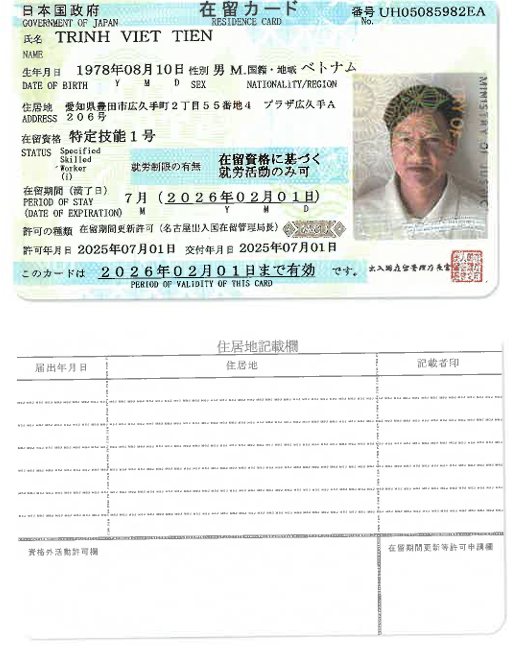 日本国政府 在留カード 番号 UH05085982EA
GOVERNMENT OF JAPAN RESIDENCE CARD No.
氏名 TRINH VIET TIEN
NAME
生年月日 1978年08月10日 性別 男 M. 国籍・地域 ベトナム
DATE OF BIRTH Y M D SEX NATIONALITY/REGION
住居地 愛知県豊田市広久手町2丁目55番地4 プラザ広久手A
ADDRESS 206号
在留資格 特定技能1号
STATUS Specified
Skilled
Worker
(i)
就労制限の有無 在留資格に基づく
就労活動のみ可
在留期間(満了日) 7月(2026年02月01日)
PERIOD OF STAY
(DATE OF EXPIRATION) M Y M D
許可の種類 在留期間更新許可(名古屋出入国在留管理局長)
許可年月日 2025年07月01日 交付年月日 2025年07月01日
このカードは 2026年02月01日まで有効 です。
PERIOD OF VALIDITY OF THIS CARD
出入国在留管理庁長官
MINISTRY OF JUSTICE
住居地記載欄
届出年月日 住居地 記載者印
資格外活動許可欄 在留期間更新等許可申請欄